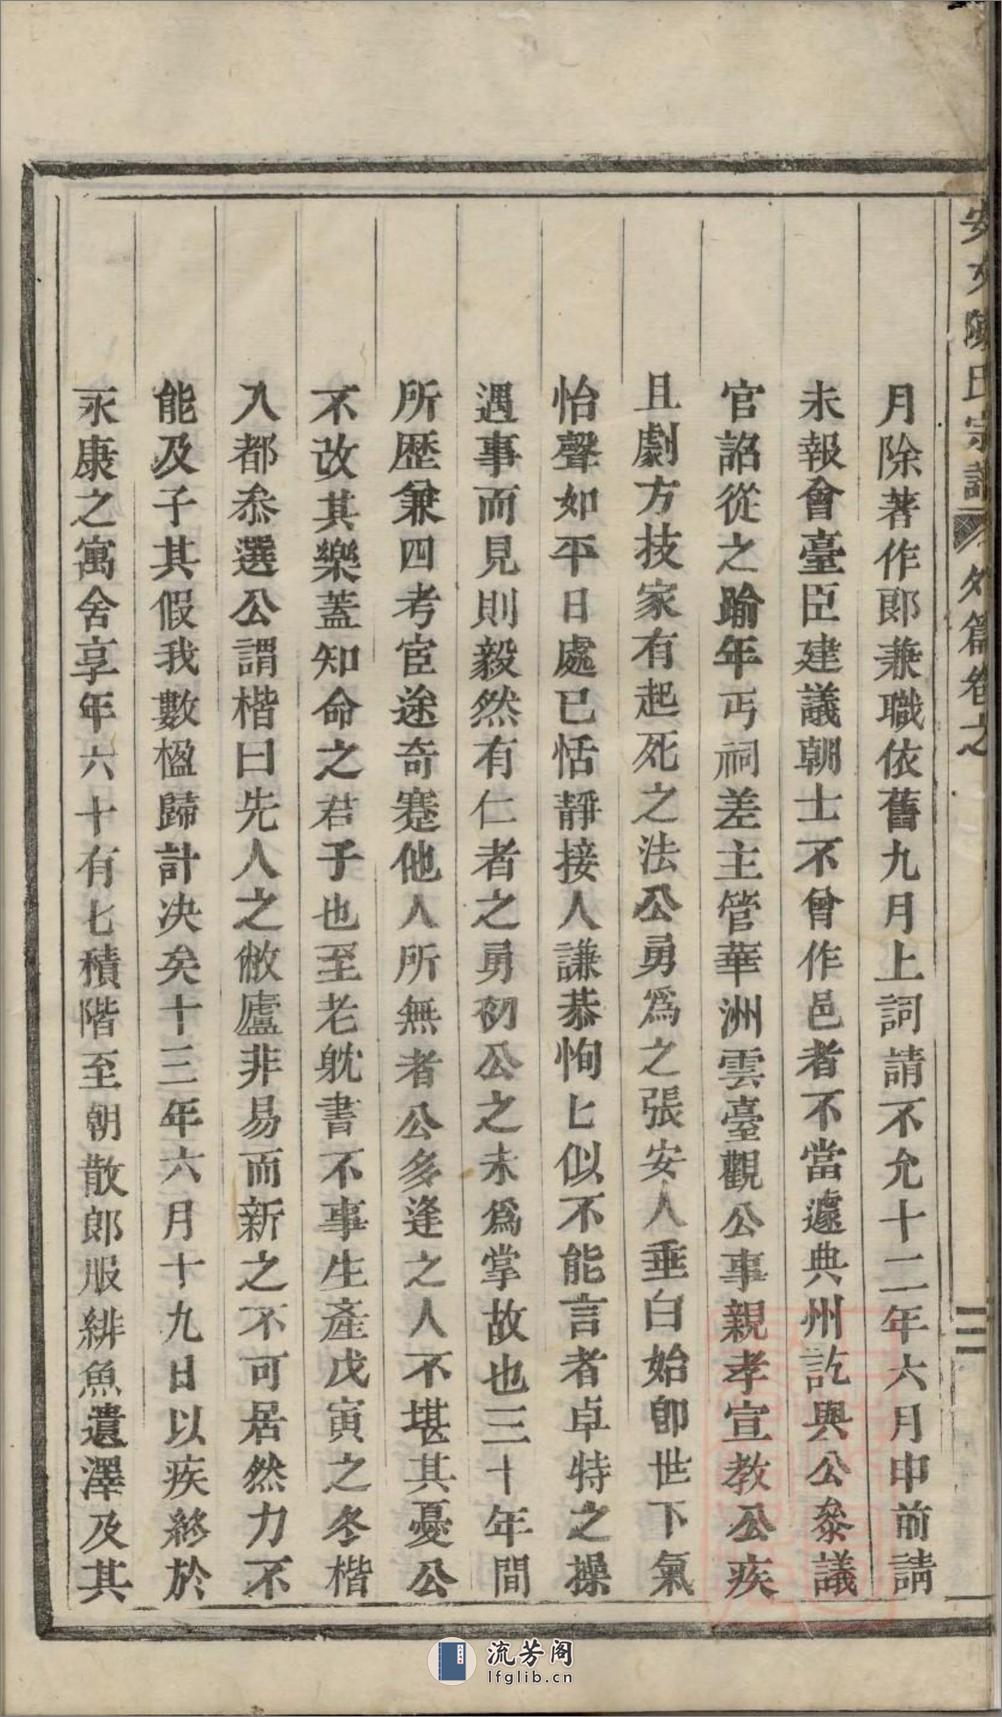 安文陳氏宗譜 外篇卷之 二
月除著作郞兼職依舊九月上詞請不允十二年六月申前請
未報會臺臣建議朝士不曾作邑者不當遽典州訖與公叅議
官詔從之踰年丐祠差主管華洲雲臺觀公事親孝宣教公疾
且劇方技家有起死之法公勇爲之張安人垂白始卽世下氣
怡聲如平日處已恬靜接人謙恭恂匕似不能言者卓特之操
遇事而見則毅然有仁者之勇初公之未爲掌故也三十年間
所歴兼四考宦途奇蹇他人所無者公多逢之人不堪其憂公
不改其樂蓋知命之君子也至老躭書不事生產戊寅之冬楷
入都叅選公謂楷曰先人之敝廬非易而新之不可居然力不
能及子其假我數楹歸計决矣十三年六月十九日以疾終於
永康之寓舍享年六十有七積階至朝散郎服緋魚遺澤及其
流芳阁
lfglib.cn